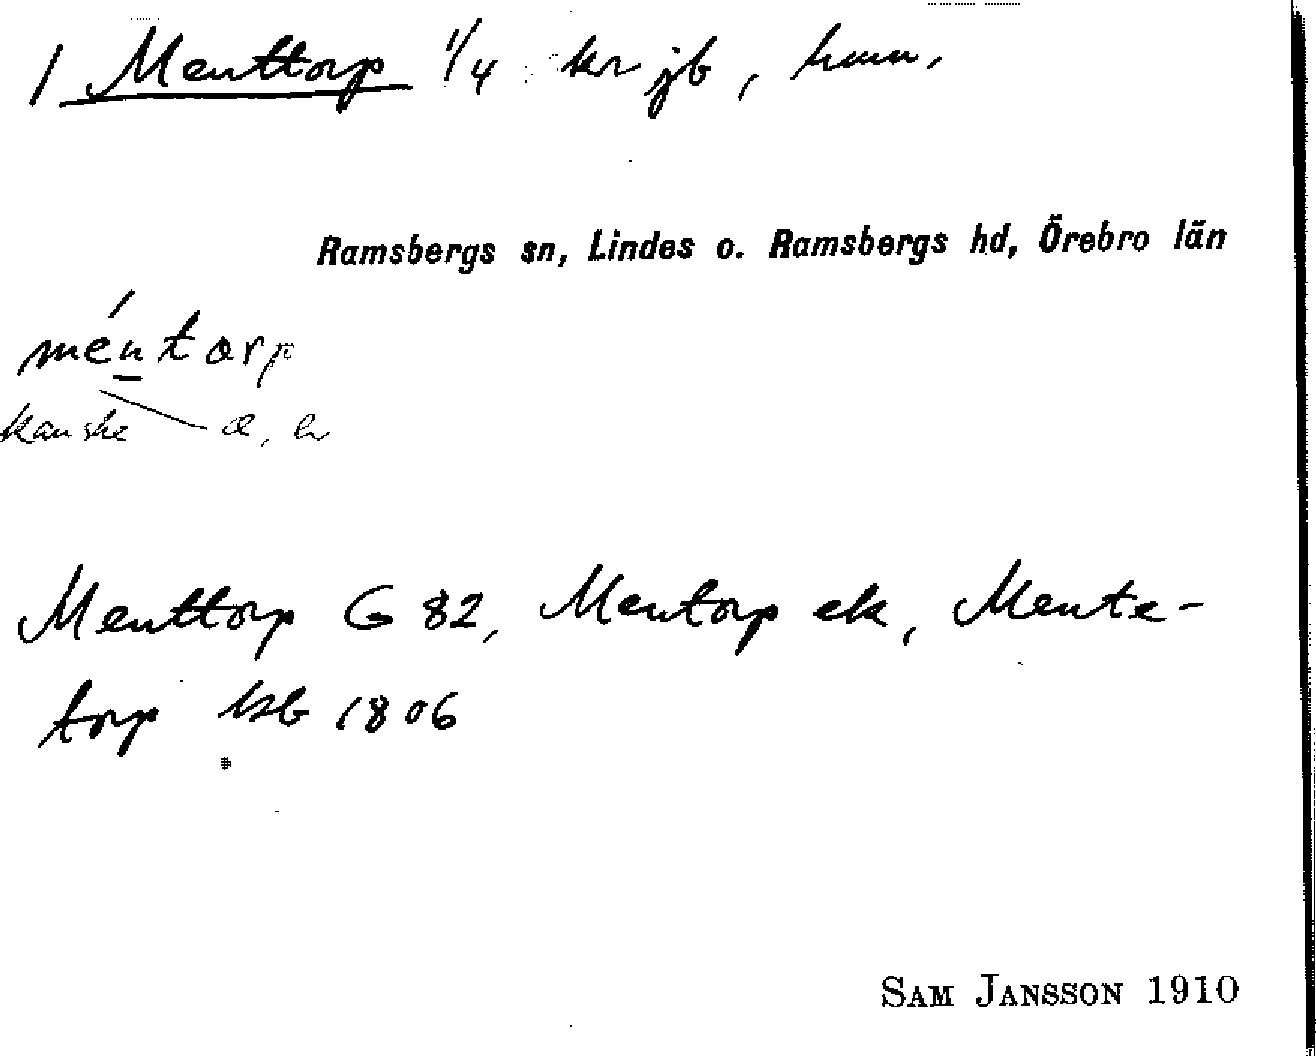 1 Menttorp 1/4 kr jb, hmn,
Ramsbergs sn, Lindes o. Ramsbergs hd, Örebro län
méntorp
kanske æ, hr
Menttorp G 82, Mentorp ek, Mente-
torp ksb 1806
SAM JANSSON 1910